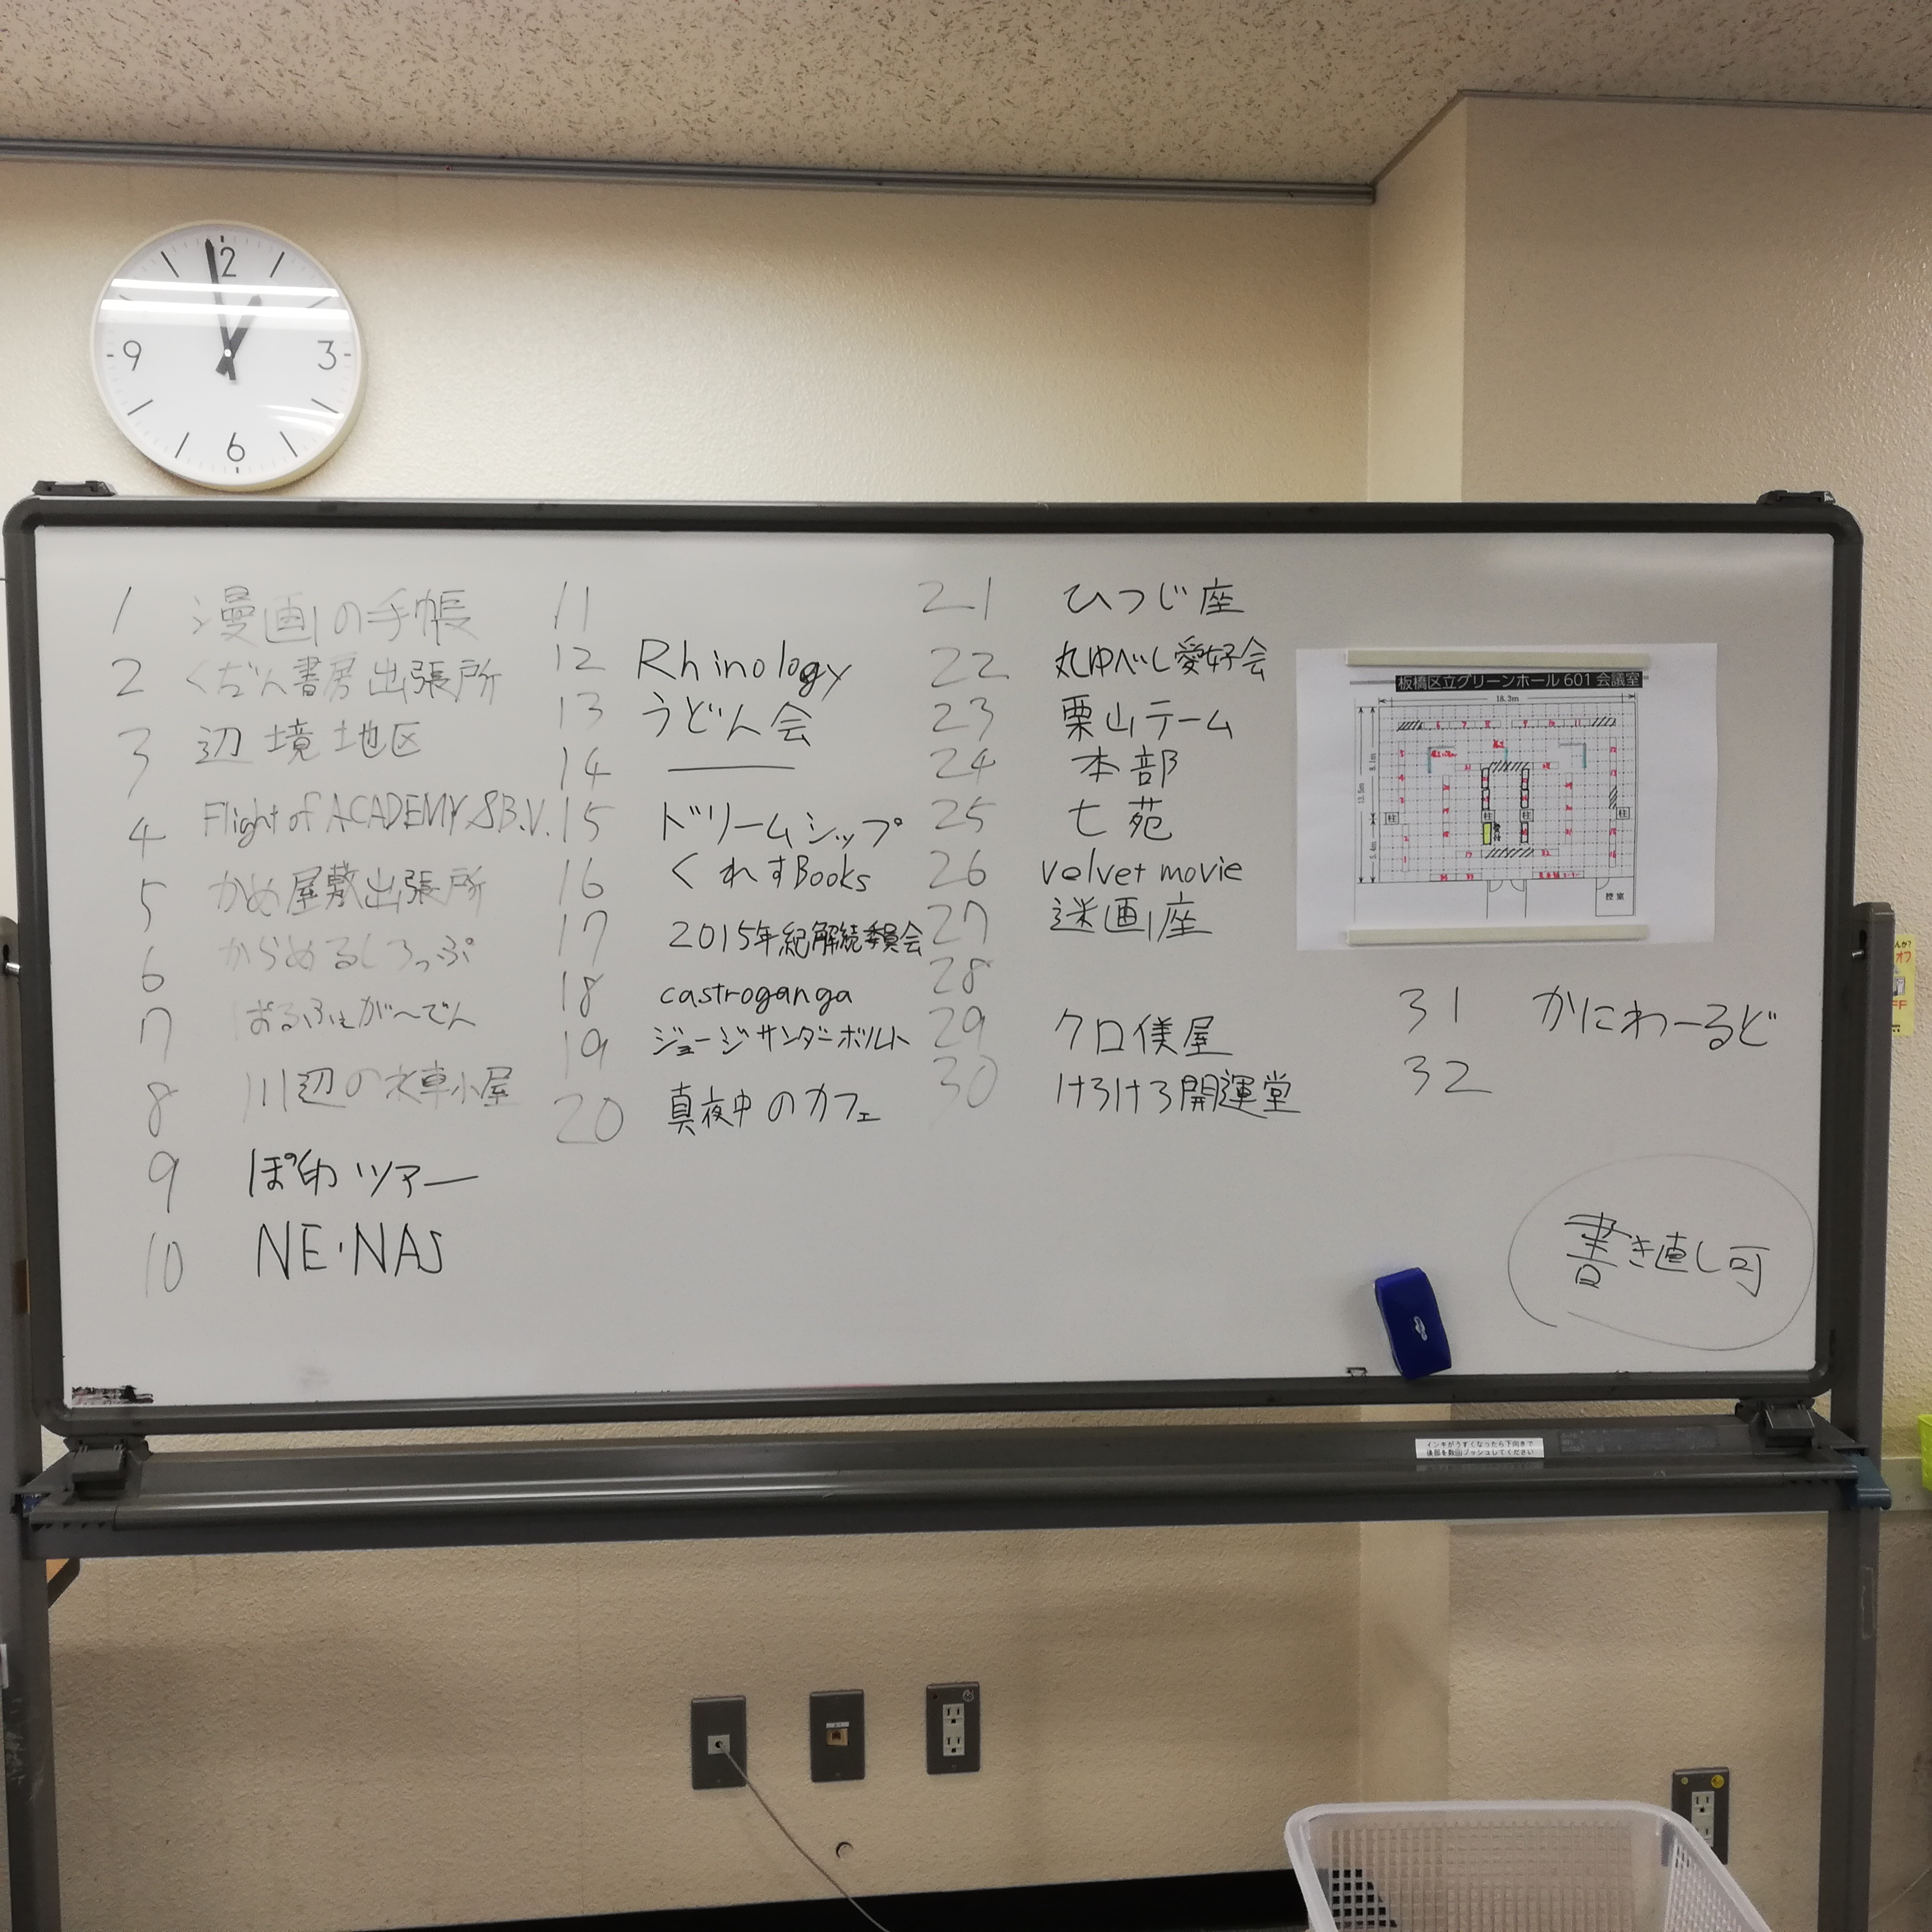 12
3
6
9
1 漫画の手帳
2 くだん書房出張所
3 辺境地区
4 Flight of ACADEMY & B.V.
5 かめ屋敷出張所
6 からめるしろっぷ
7 おるふぇがーでん
8 川辺の水車小屋
9 ぽわツアー
10 NE・NAS
11
12 Rhinology
13 うどん会
14 ―
15 ドリームシップ
16 くれすBooks
17 2015年紀解続委員会
18 castroganga
19 ジョージサンダーボルト
20 真夜中のカフェ
21 ひつじ座
22 丸ゆべし愛好会
23 栗山テーム
24 本部
25 七苑
26 velvet movie
27 迷画座
28
29 クロ僕屋
30 けろけろ開運堂
31 かにわーるど
32
書き直し可
板橋区立グリーンホール 601 会議室
18.3m
8.1m
13.5m
5.4m
柱
柱
柱
柱
控室
インキがうすくなったら下向きで
後部を数回プッシュしてください